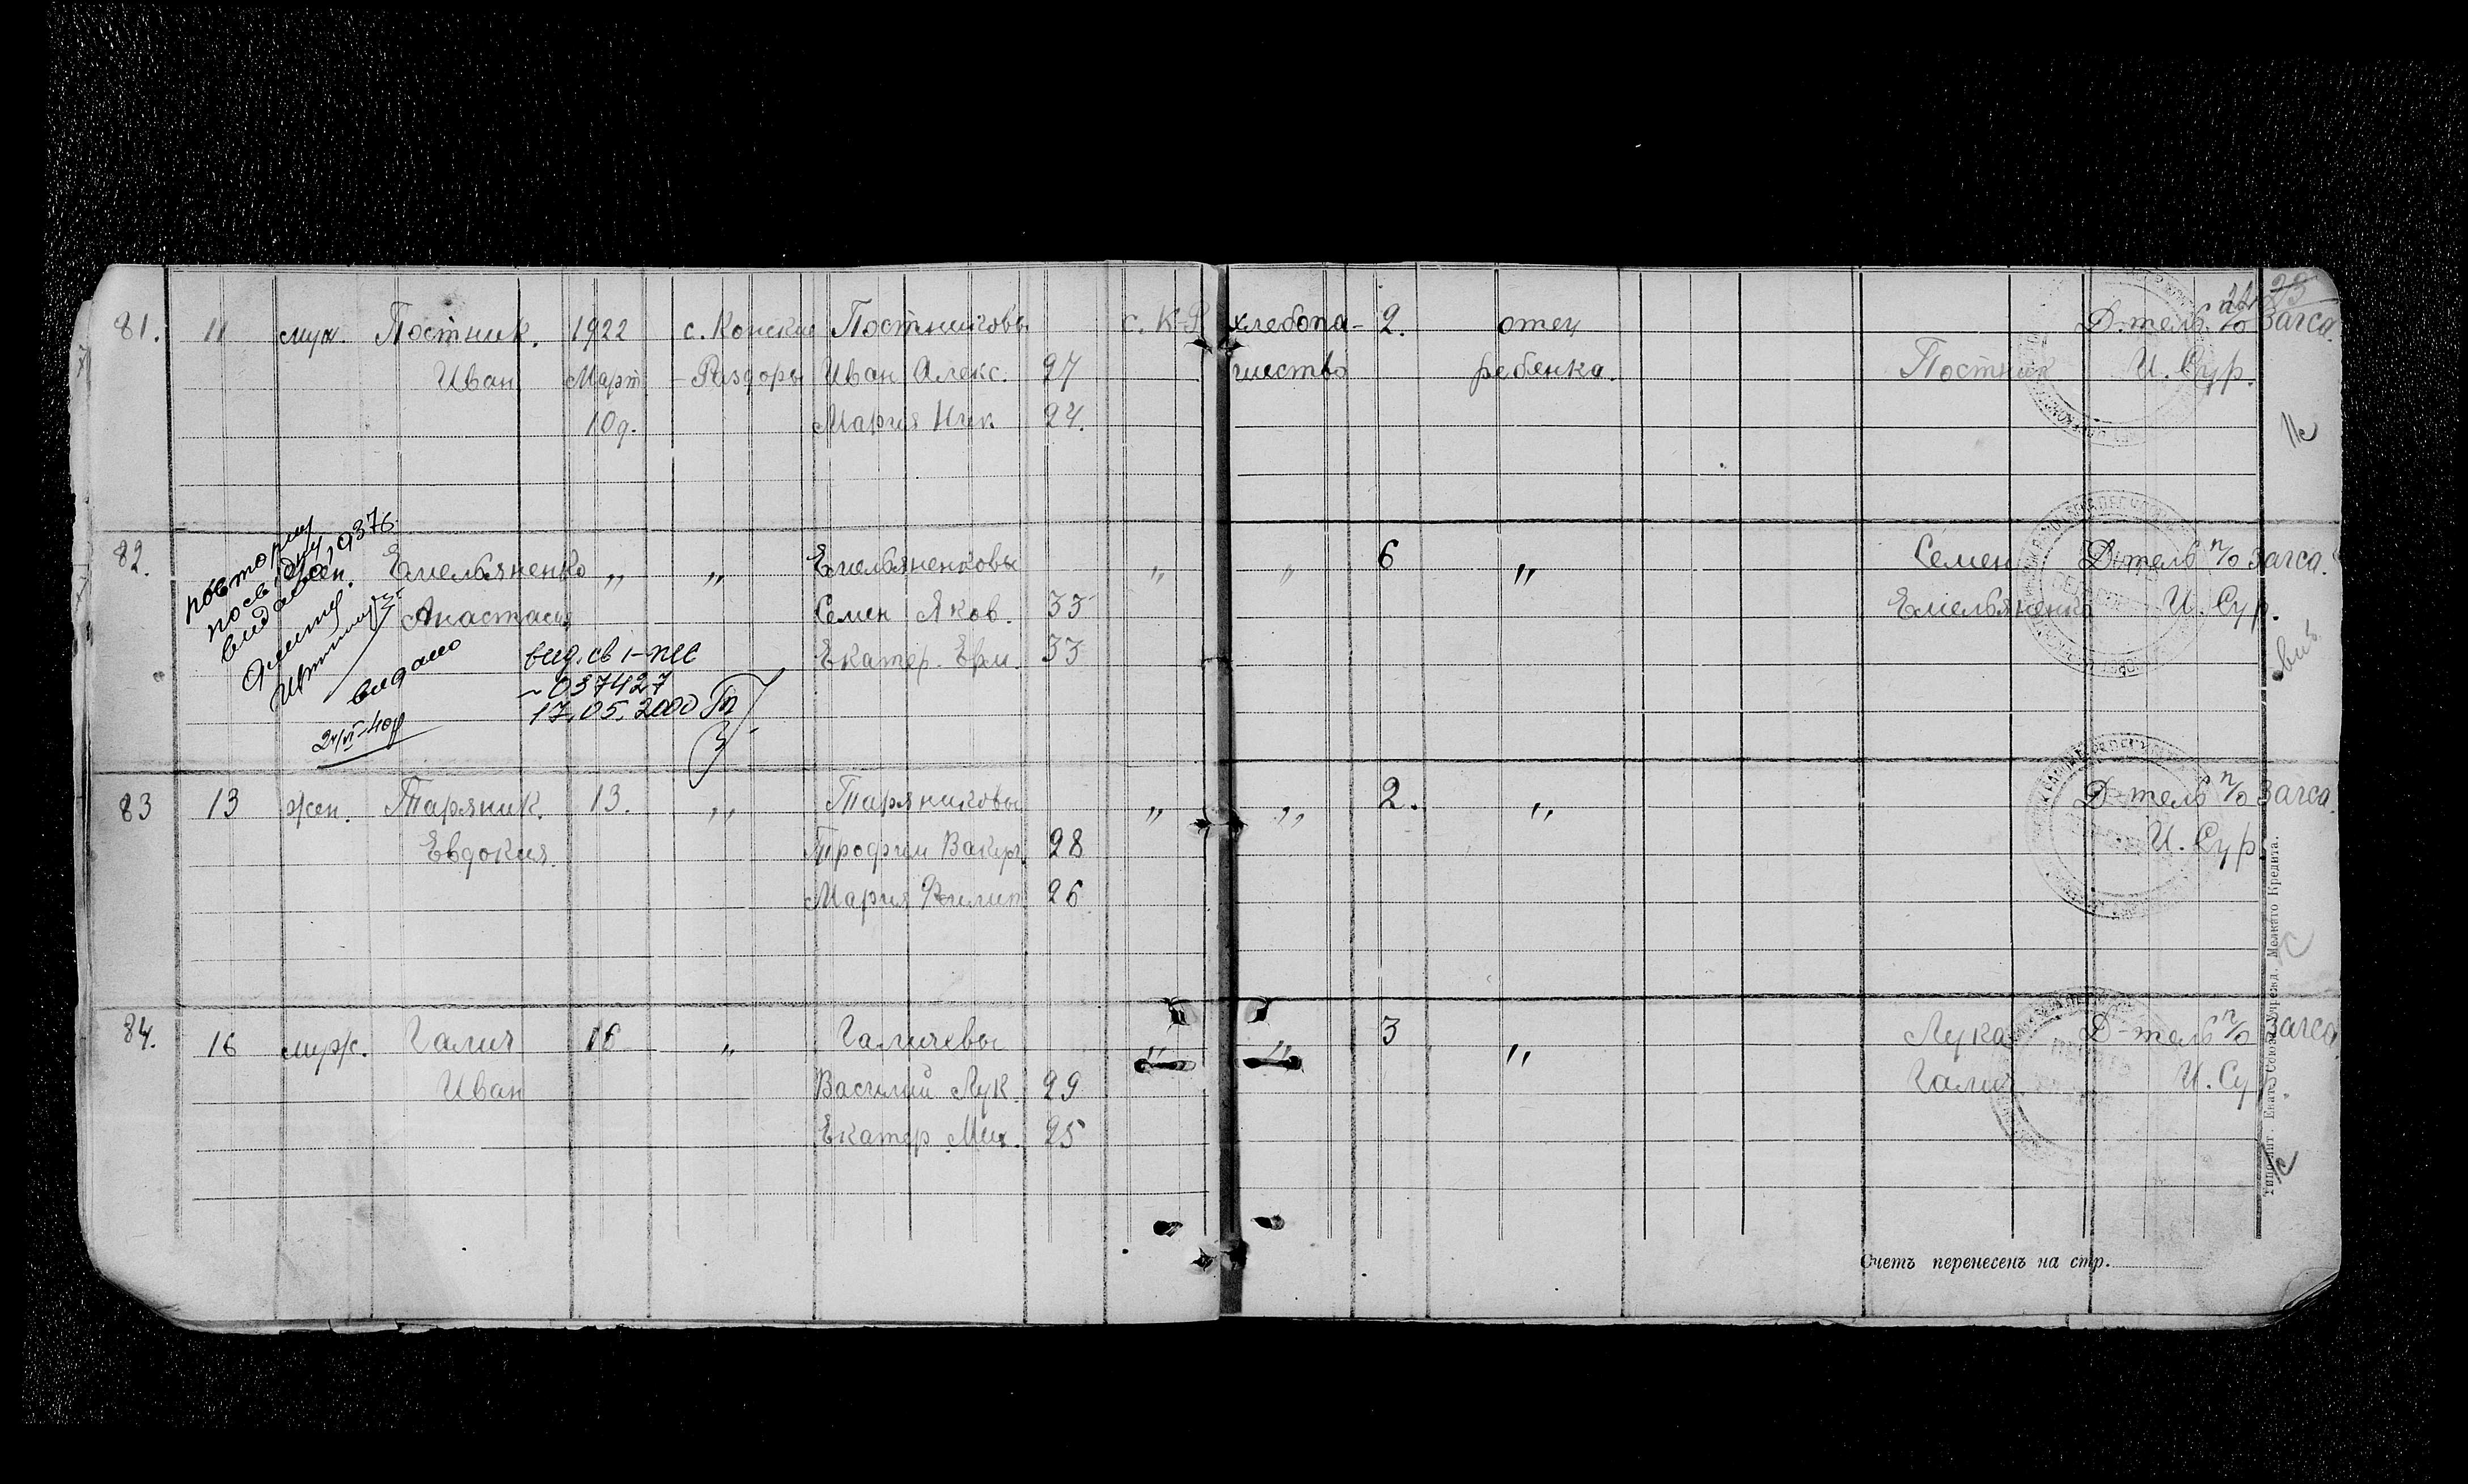 22 23
81. 11 муж. Постник. 1922 с. Конские Постниковы с. К-Р хлебопа- 2. отец Д-тель п/о Загса.
Иван Март -Раздоры Иван Алекс. 27 шество ребенка. Постник И. Сур.
10 д. Мария Ник 24.
82. Емельяненко „ „ Емельяненковы „ „ 6 „ Семен Д-тель п/о Загса.
Анастасия Семен Яков. 33 Емельяненко И. Сур.
Екатер. Ерм. 33
повторну
видано
вид. св 1-
037427
17.05.2000
83 13 жен. Таряник. 13. „ Таряниковы „ „ 2. „ Д-тель п/о Загса
Евдокия. Трофим 28 И. Сур.
Мария Филип. 26
84. 16 муж. Галич 16 „ Галичевы „ „ 3 „ Лука Д-тель п/о Загса
Иван Василий Лук. 29 Галич И. Сур.
Екатер. Мих. 25
Счетъ перенесенъ на стр.
Типо-лит. Екат. Союза Учрежд. Мелкаго Кредита.